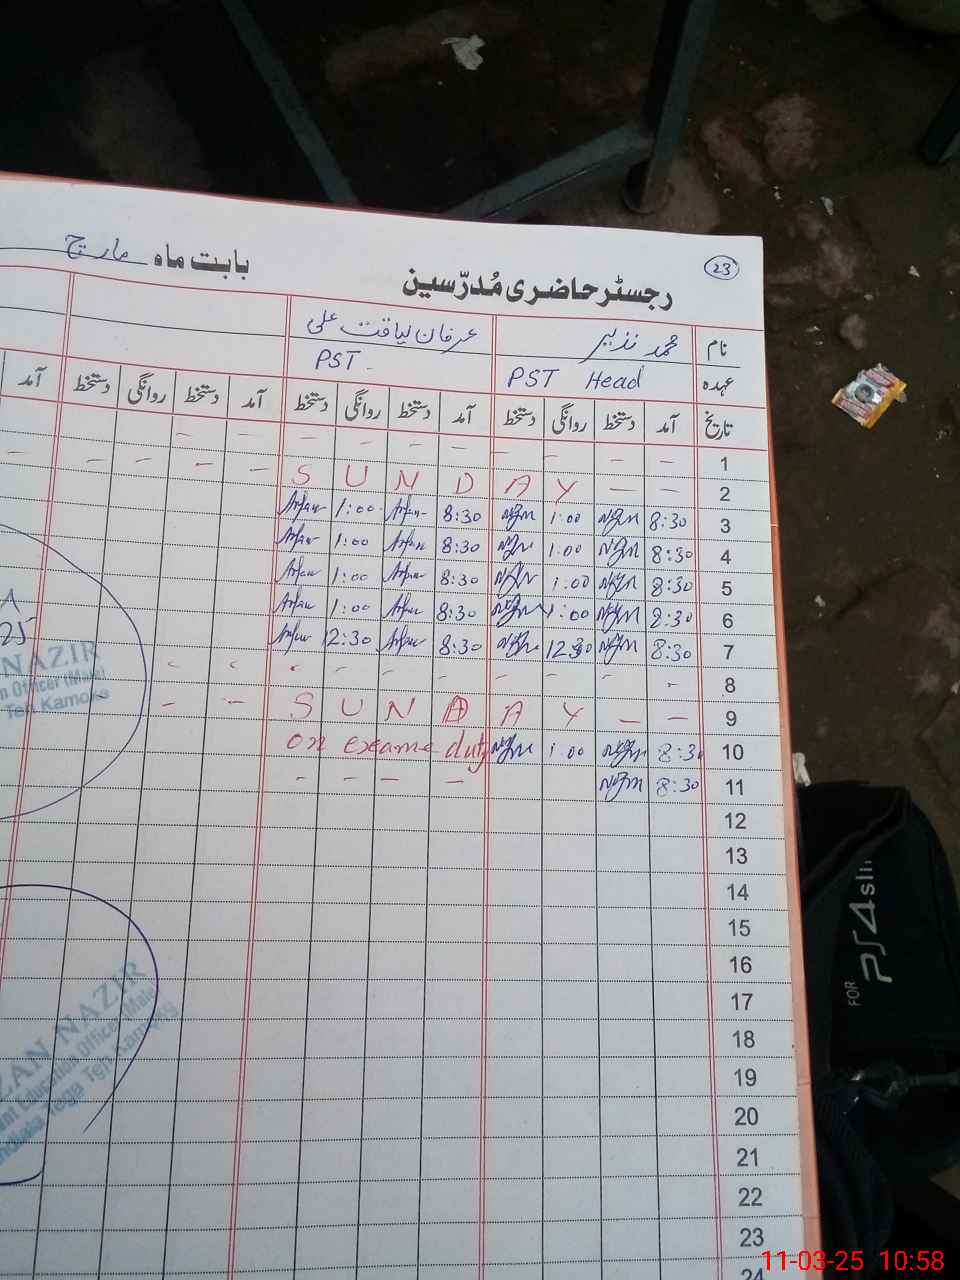 23
رجسٹر حاضری مُدرّسین بابت ماہ مارچ
نام محمد نذیر عرفان لیاقت علی
عہدہ PST Head PST -
تاریخ آمد دستخط روانگی دستخط آمد دستخط روانگی دستخط آمد دستخط روانگی دستخط آمد
1 - - - - - - - - - -
2 S U N D A Y - - - - - - -
3 8:30 1:00 8:30 Irfan 1:00 Irfan
4 8:30 1:00 8:30 Irfan 1:00 Irfan
5 8:30 1:00 8:30 Irfan 1:00 Irfan
6 8:30 1:00 8:30 Irfan 1:00 Irfan
7 8:30 12:30 8:30 Irfan 12:30 Irfan
8 - - - - - - - - - -
9 S U N D A Y - - - -
10 8:30 1:00 on exame duty
11 8:30 - - - -
12
13
14
15
16
17
18
19
20
21
22
23
24
A
25
NAZIR
n Officer (Male)
Teh Kamoke
ZAN NAZIR
nt Education Officer (Male)
Teh Kamoke
FOR PS4 sli
11-03-25 10:58